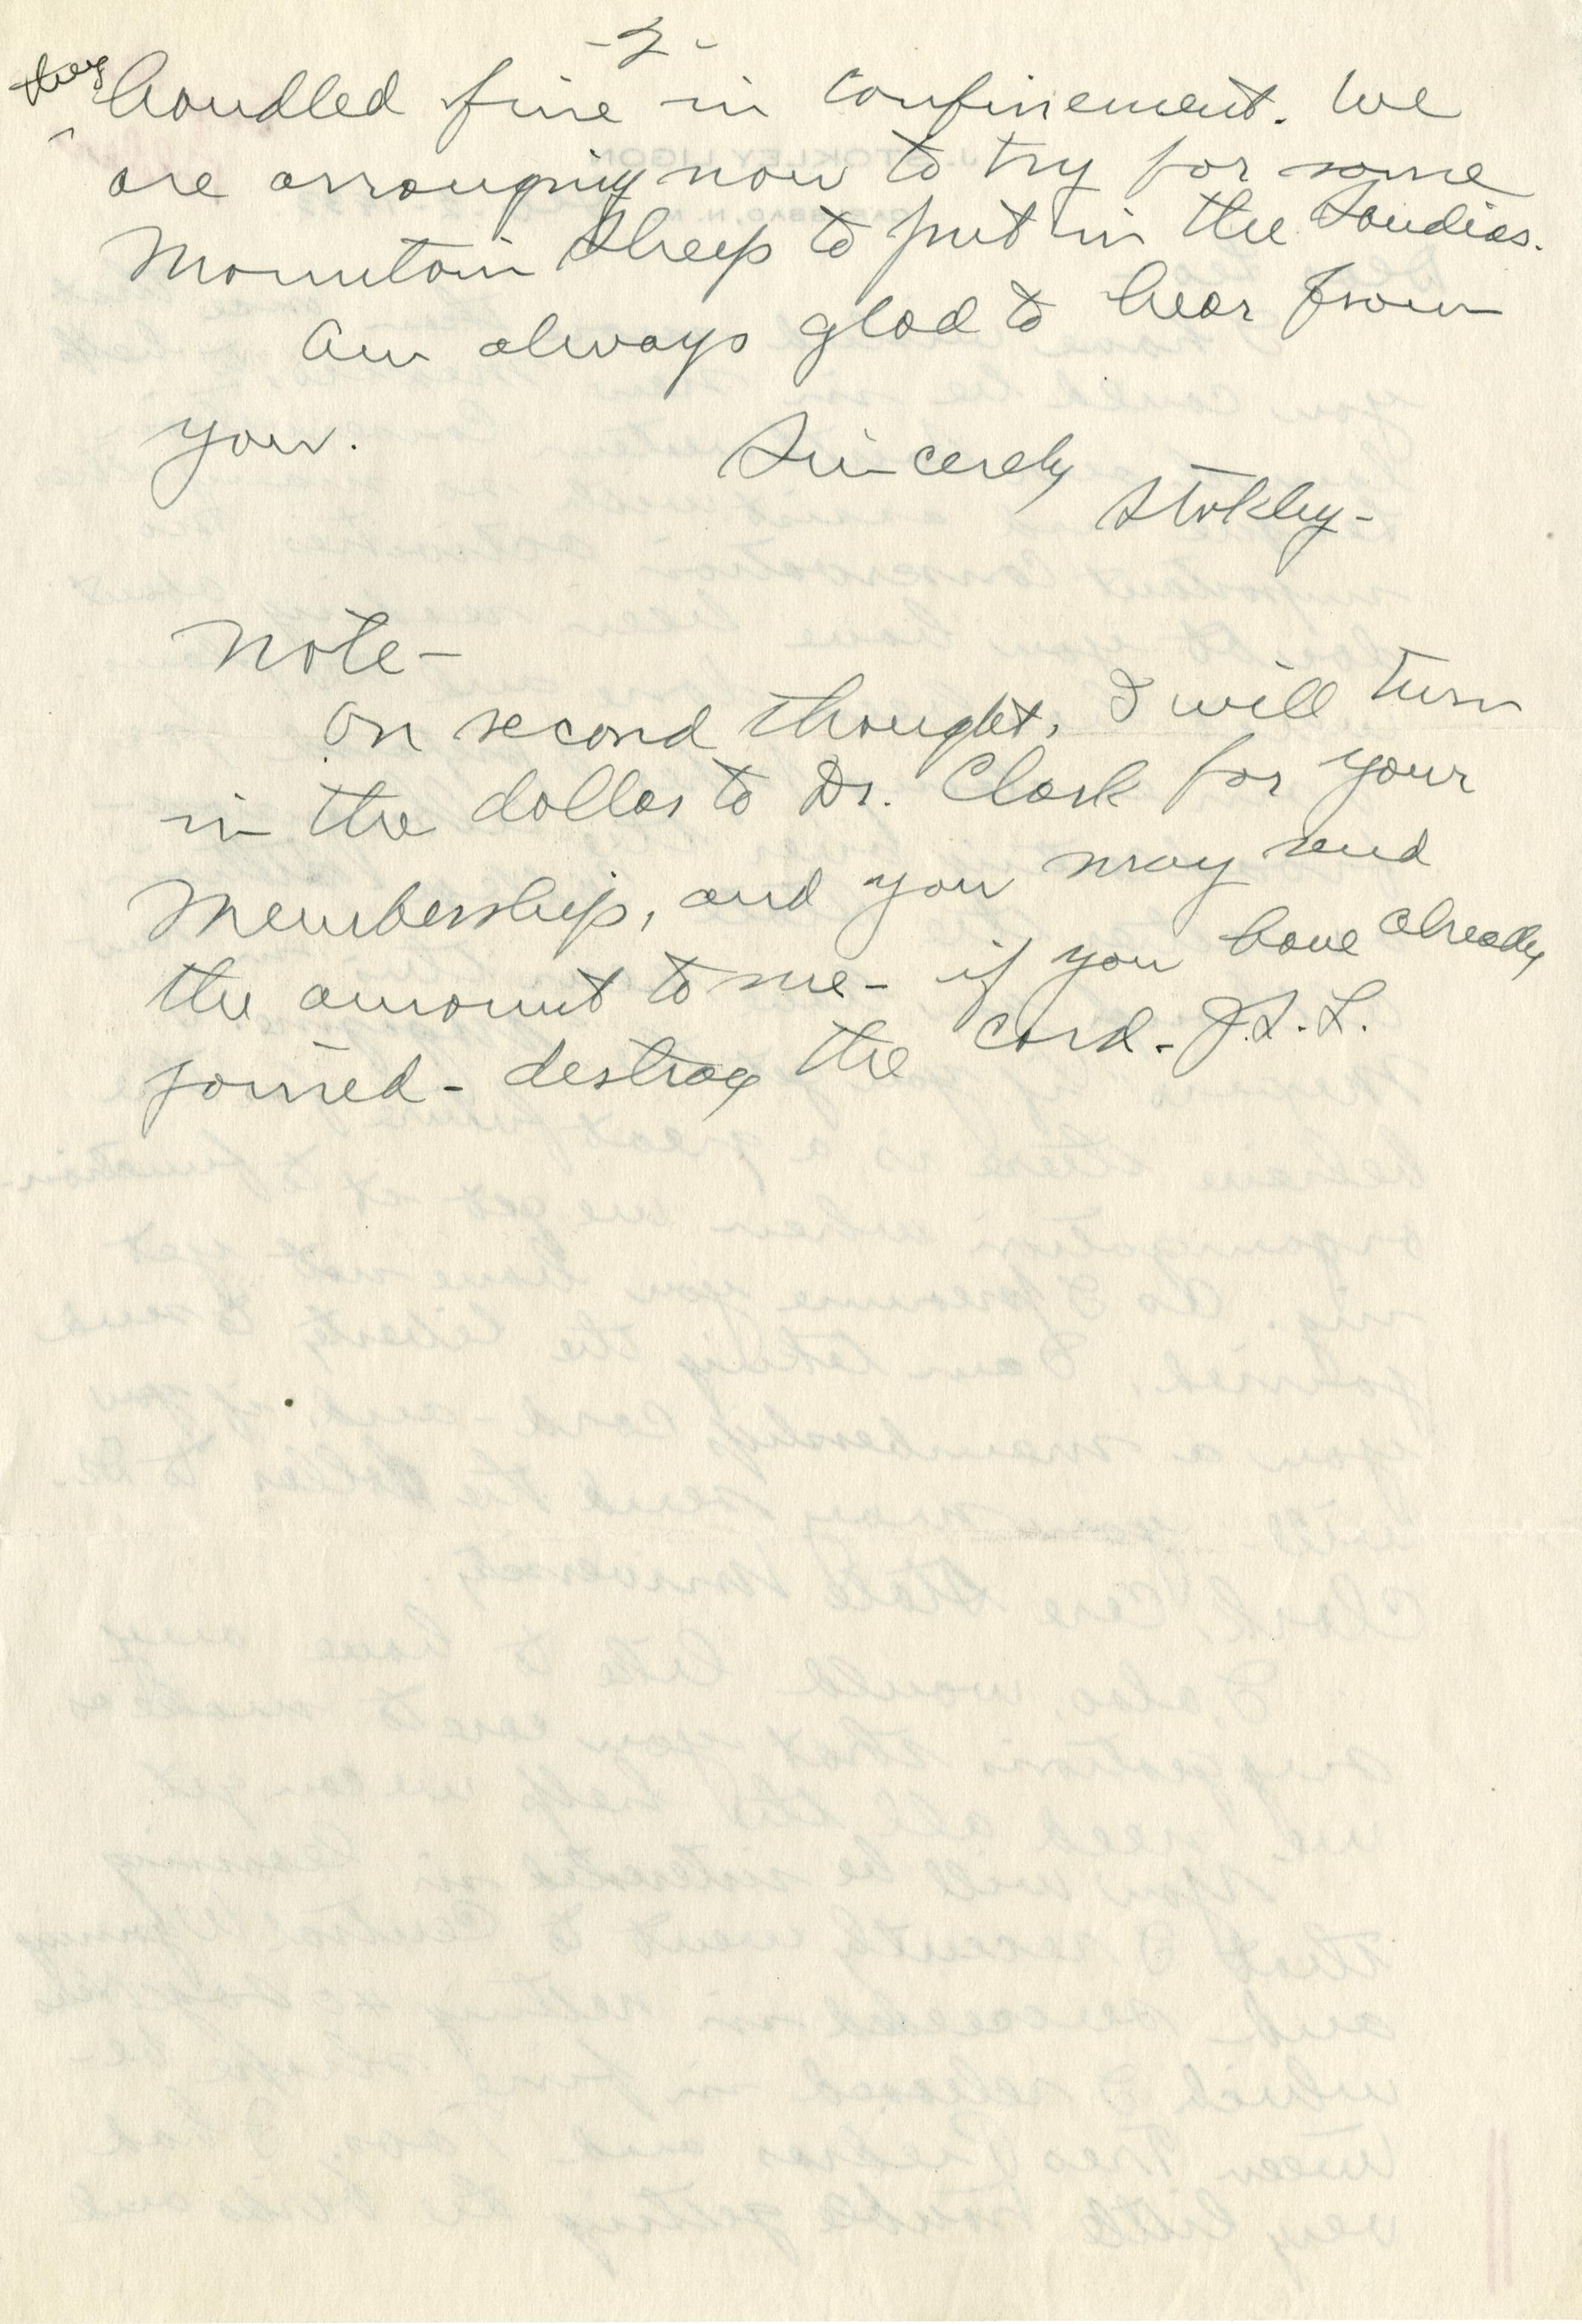 -2-
they handled fine in confinement. We
are arranging now to try for some
Mountain Sheep to put in the Sandias.
Am always glad to hear from
you.
Sincerely
Stokley-
Note-
On second thought, I will turn
in the dollar to Dr. Clark for your
Membership, and you may send
the amount to me- if you have already
joined- destroy the card. J.S.L.